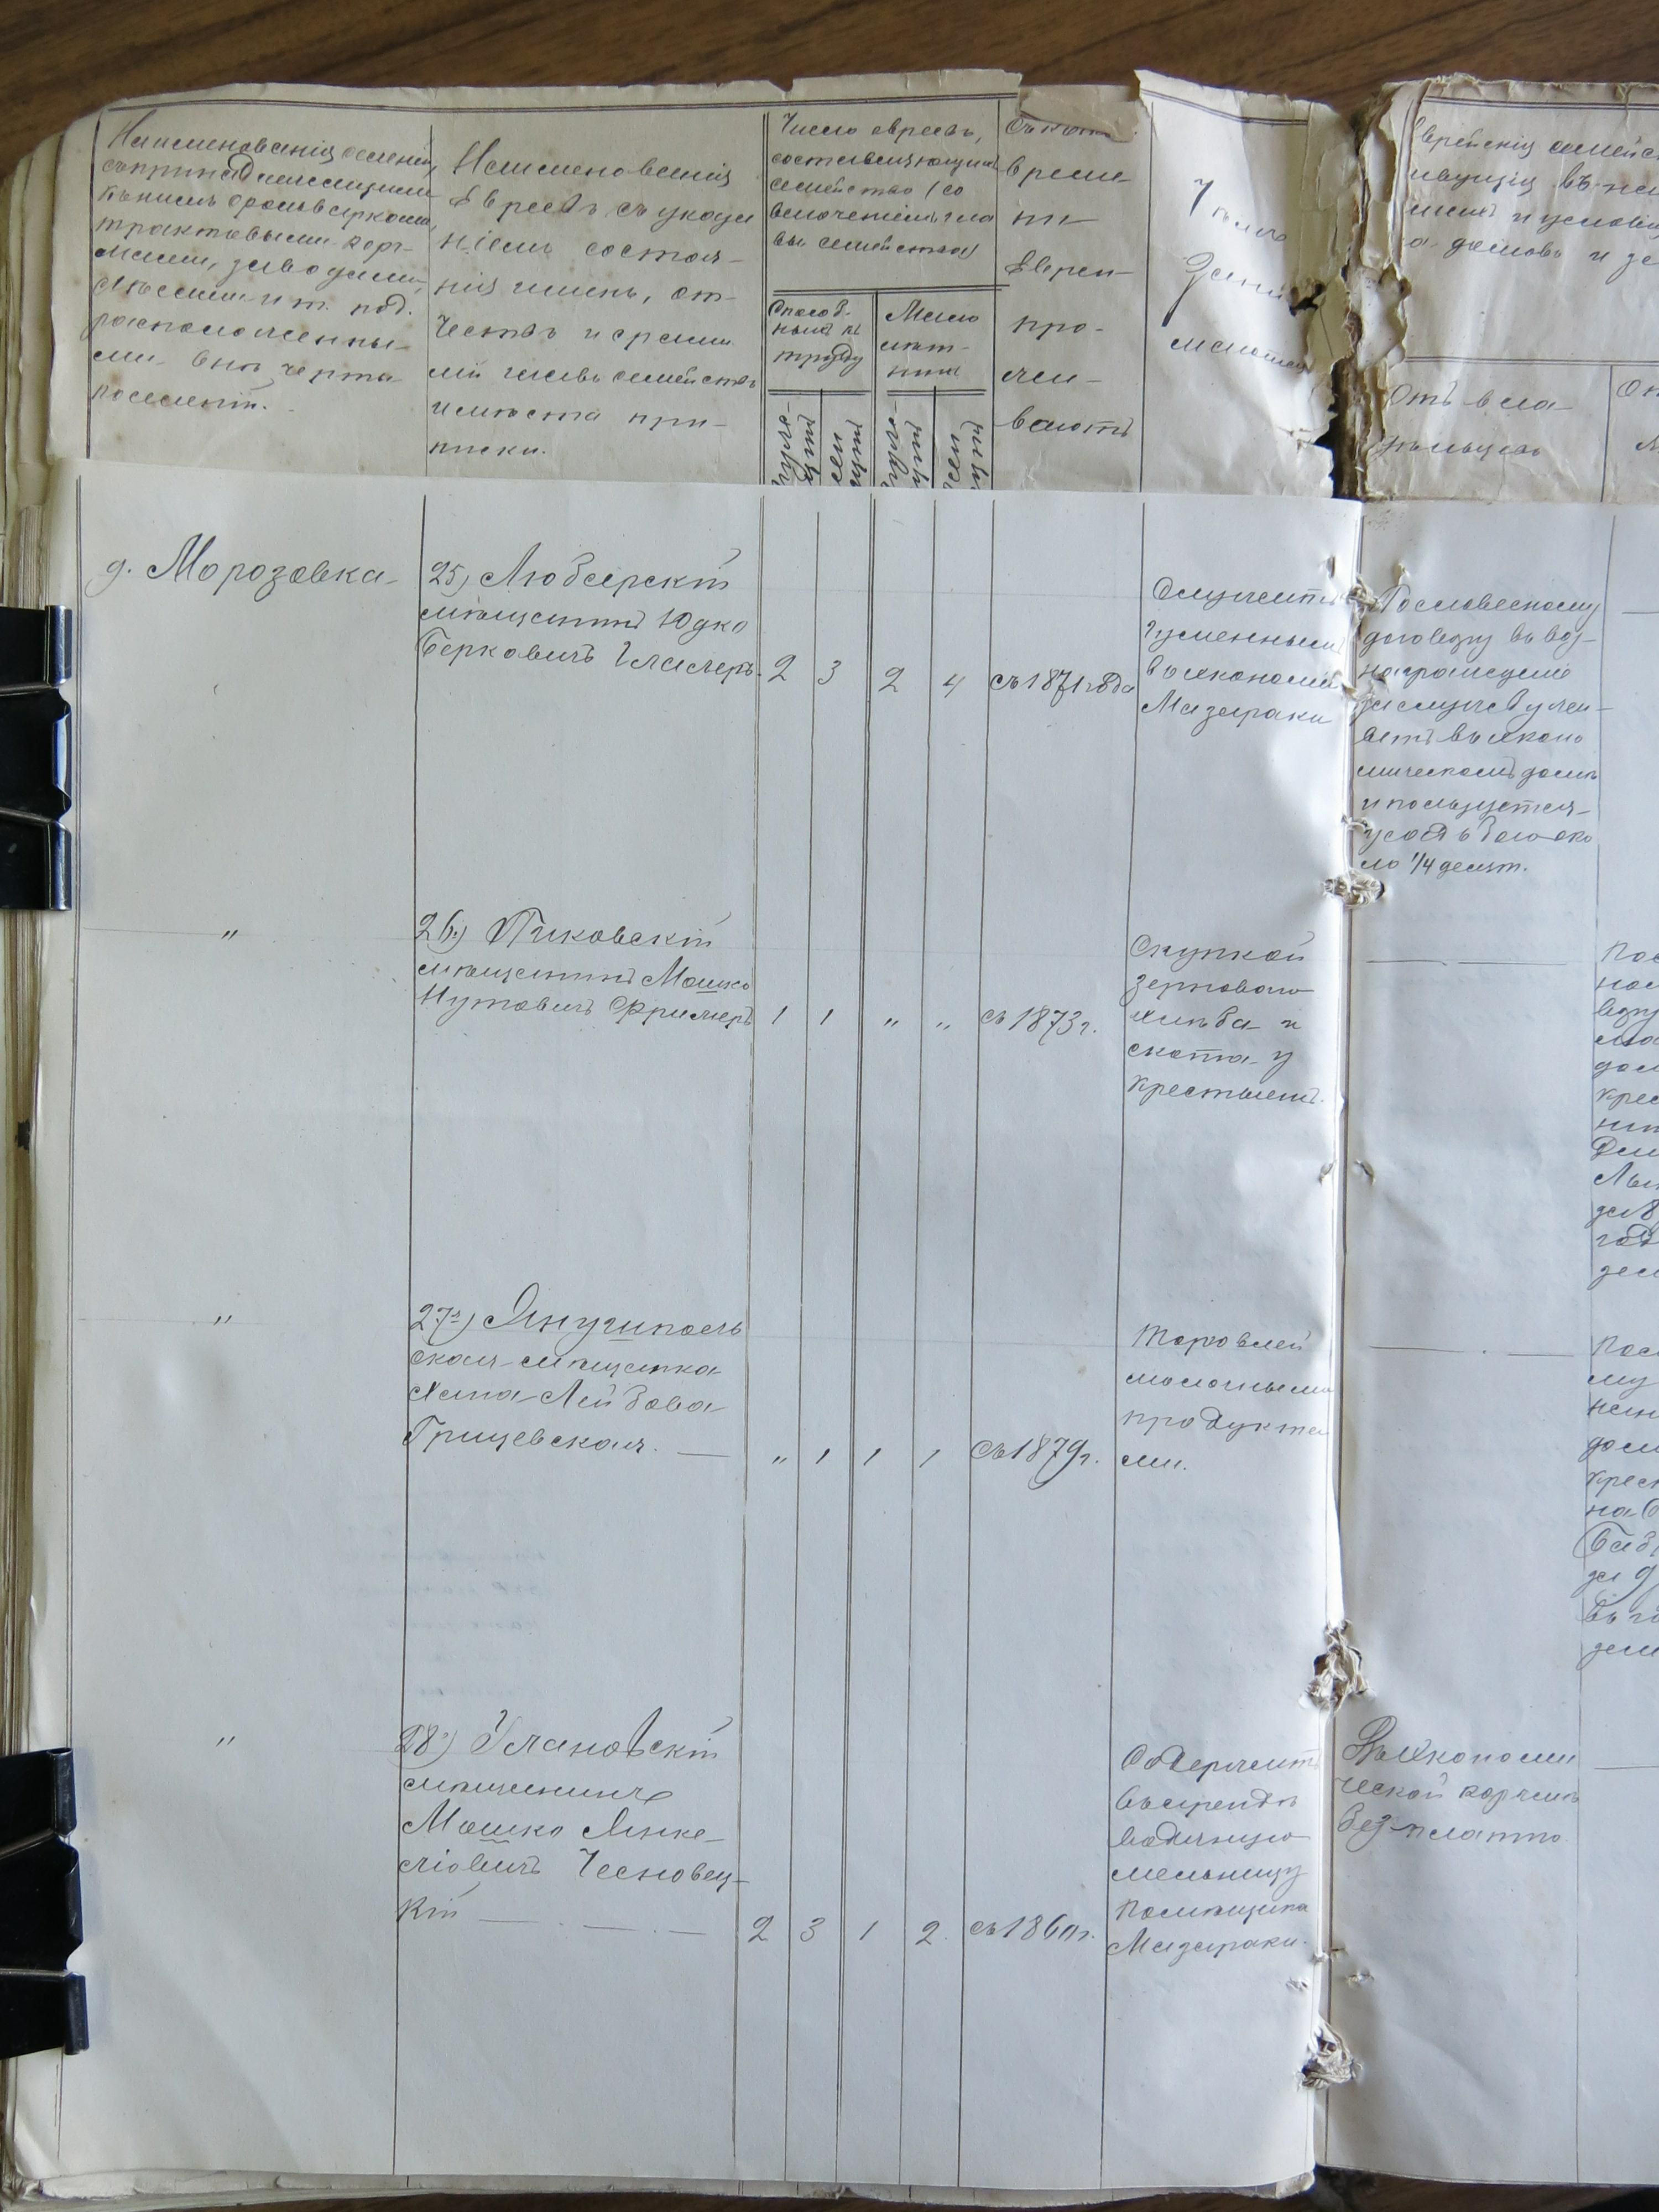 Наименованія селеній
съ принадлежащими
къ нимъ фольварками,
трактовыми кор-
чмами, заводами,
лѣсами и т. под.
расположенны-
ми внѣ черты
поселенія.
Наименованія
Евреевъ съ указа
ніемъ состоя-
нія имени, от-
чества и фами
лій главъ семействъ
и мѣста при-
писки.
Число евреевъ,
составляющихъ
семейство (со
включеніемъ гла
вы семейства)
Способ-
ныхъ къ
труду
Мало
лѣт-
нихъ
време-
ни
Евреи
про-
жи-
ваютъ
Чѣмъ
зани
маются
Отъ вла-
дѣльцевъ
д. Морозовка
25) Любарскій
мѣщанинъ Юдко
Берковичъ Гласеръ
2 3 2 4 съ 1871 года
Служитъ
гуменнымъ
въ экономіи
Мазараки
По словесному
договору въ воз-
награжденіе
за службу жи-
ветъ въ эконо
мическомъ домѣ
и пользуется
усадьбою око
ло 1/4 десят.
"
26) Пиковскій
мѣщанинъ Мошко
Нутовичъ Фримеръ
1 1 " " съ 1873 г.
Скупкой
зерноваго
хлѣба и
скота у
крестьянъ.
"
27) Янушполь
ская мѣщанка
Хана Лейбова
Грищевская. —
" 1 1 1 съ 1879 г.
Торговлей
молочными
продукта
ми.
"
28) Улановскій
мѣщанинъ
Мошко Янке-
ліовичъ Чесновец-
кій —
2 3 1 2 съ 1860 г.
Содержитъ
въ арендѣ
водяную
мельницу
помѣщика
Мазараки.
Въ экономи
ческой корчмѣ
безплатно.